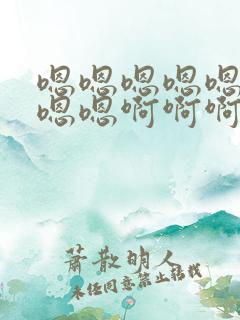 嗯嗯嗯嗯嗯
嗯嗯啊啊啊
萧散的人
未经同意禁止转载